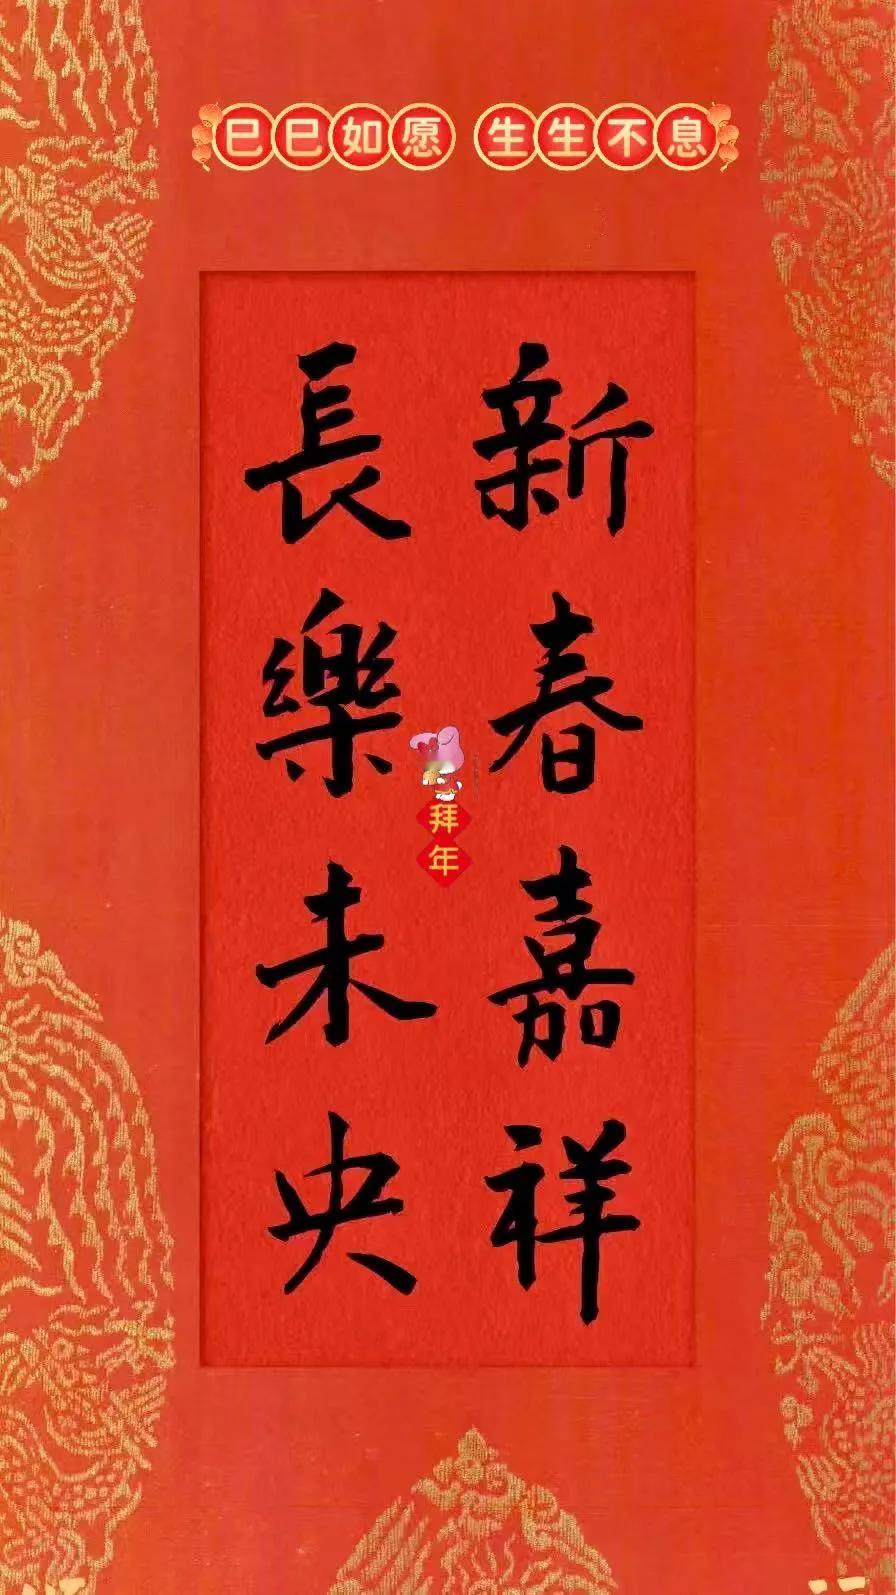 巳巳如愿 生生不息
新春嘉祥
長樂未央
拜年